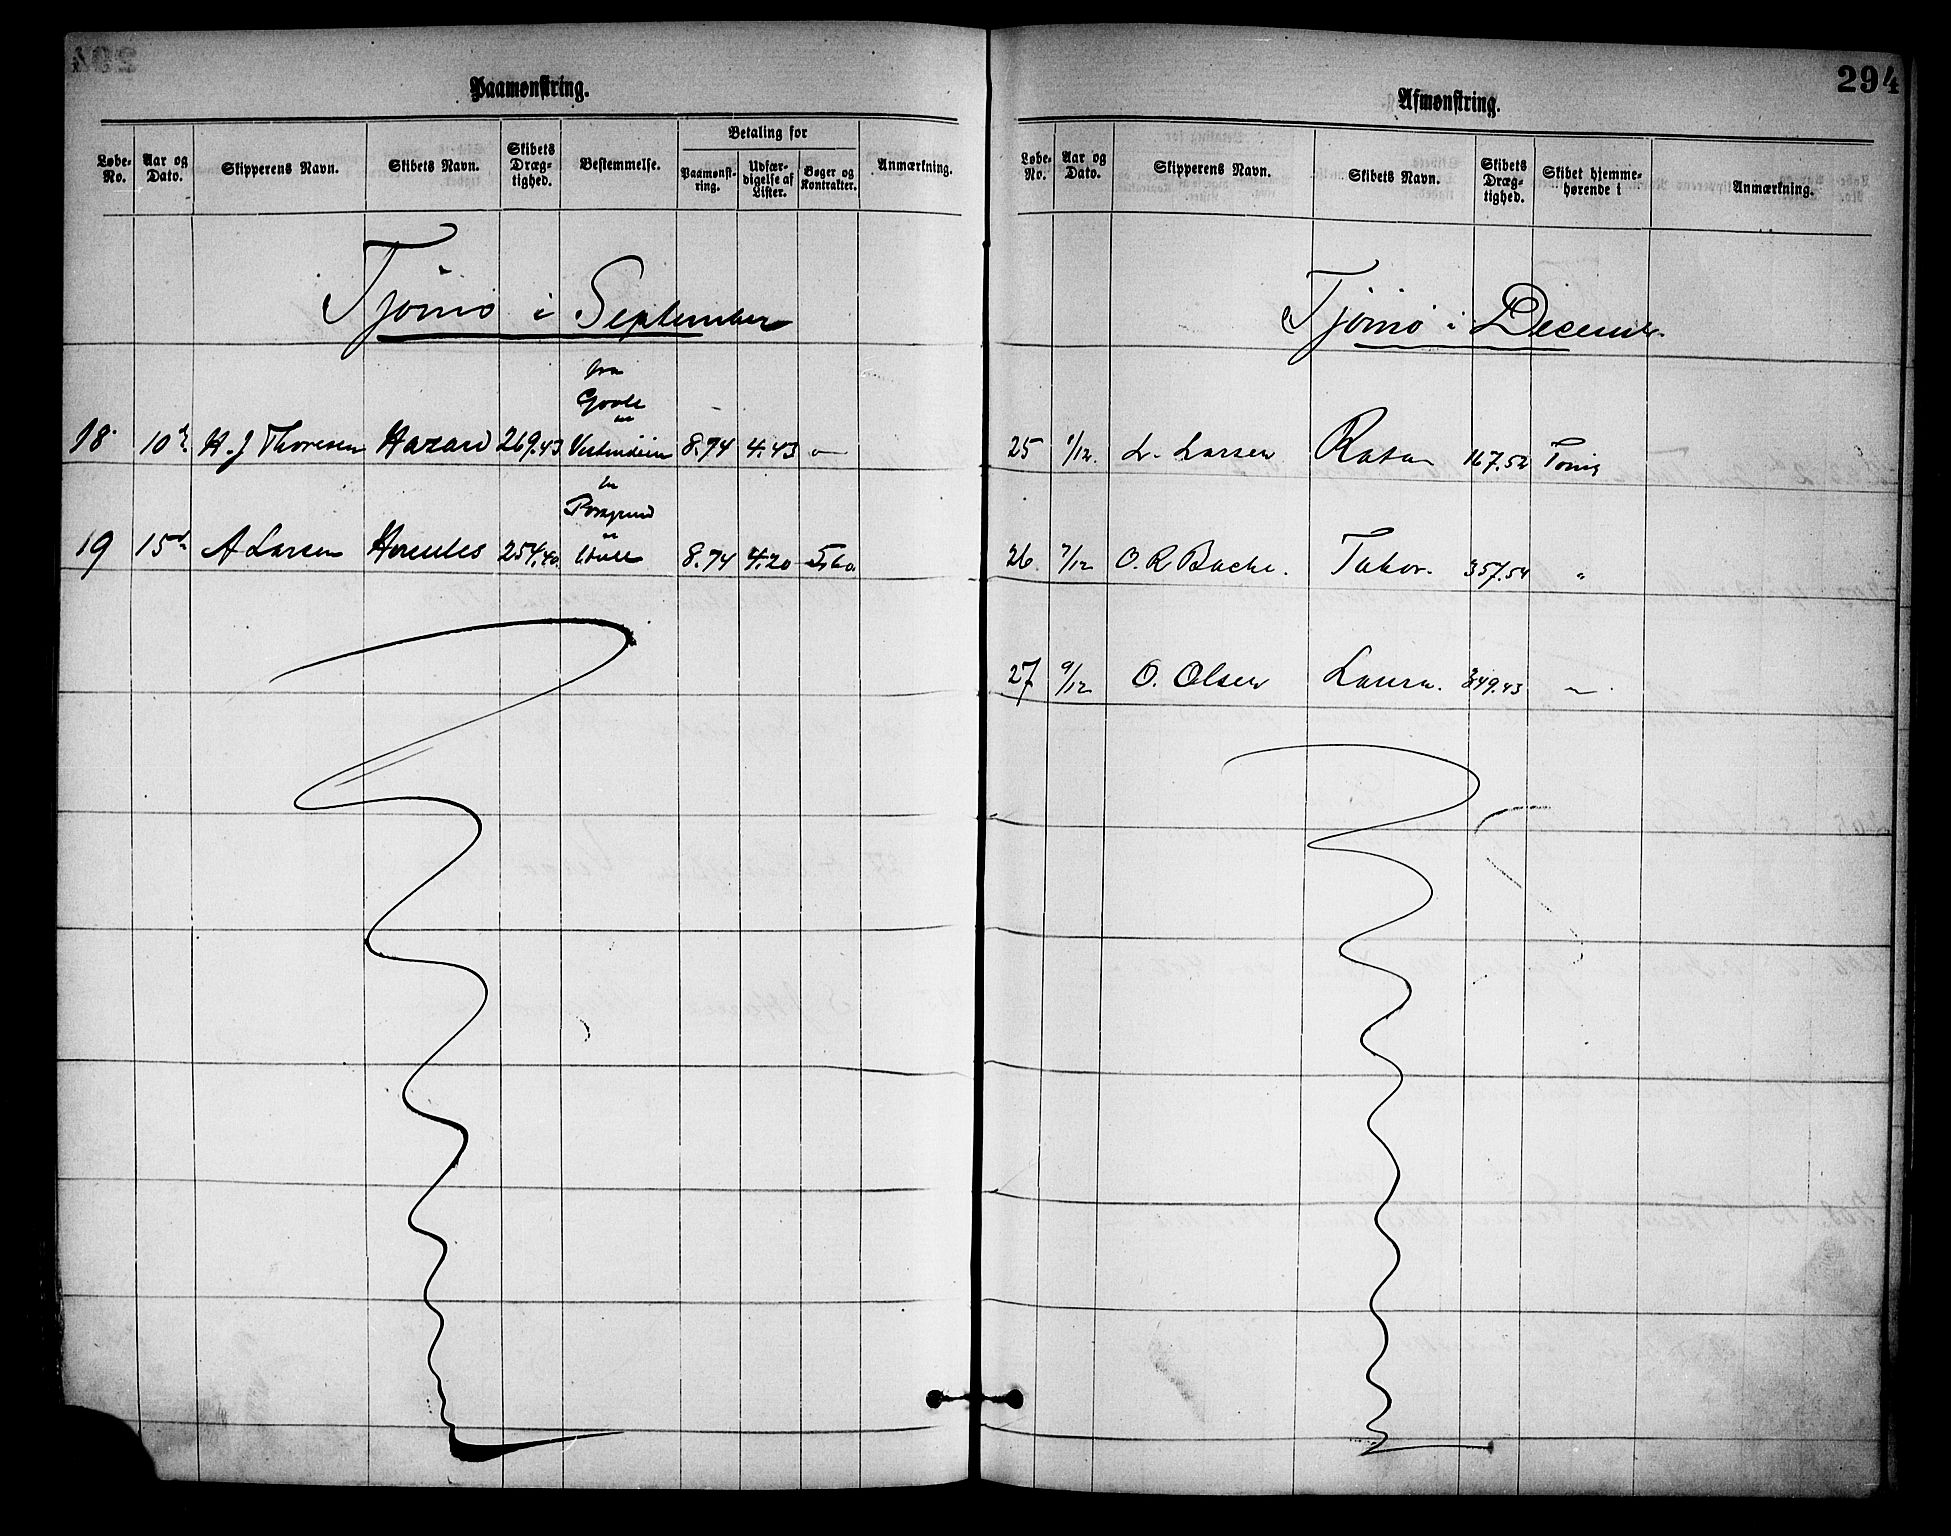 Paamønstring.
Løbe-No. Aar og Dato. Skipperens Navn. Skibets Navn. Skibets Dræg-tighed. Bestemmelse. Betaling for Paamønst-ring. Udfær-digelse af Lister. Bøger og Kontrakter. Anmærkning.
Tjømø i September
fra
Goole
18 10 H. J Thoresen Hazard 269.43 Vestindien 8.74 4.43 "
fra
Porsgrund
19 15 A Larsen Hercules 254,40 8.74 4.20
294
Afmønstring.
Løbe-No. Aar og Dato. Skipperens Navn. Skibets Navn. Skibets Dræg-tighed. Skibet hjemme-hørende i Anmærkning.
Tjømø i Decembr.
25 1/12. L. Larsen Rota 167.52
26. 7/12 O. R Bache. Tabor. 357.54 "
27 9/12 O. Olsen Laura. 349.43 "